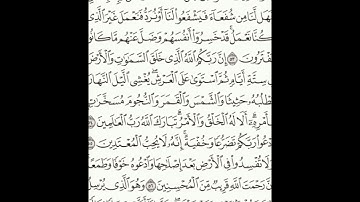 فَهَل لَّنَا مِن شُفَعَآءَ فَيَشْفَعُوا۟ لَنَآ أَوْ نُرَدُّ فَنَعْمَلَ غَيْرَ ٱلَّذِى
كُنَّا نَعْمَلُ ۚ قَدْ خَسِرُوٓا۟ أَنفُسَهُمْ وَضَلَّ عَنْهُم مَّا كَانُوا۟
يَفْتَرُونَ ٥٣ إِنَّ رَبَّكُمُ ٱللَّهُ ٱلَّذِى خَلَقَ ٱلسَّمَٰوَٰتِ وَٱلْأَرْضَ
فِى سِتَّةِ أَيَّامٍ ثُمَّ ٱسْتَوَىٰ عَلَى ٱلْعَرْشِ يُغْشِى ٱلَّيْلَ ٱلنَّهَارَ
يَطْلُبُهُۥ حَثِيثًا وَٱلشَّمْسَ وَٱلْقَمَرَ وَٱلنُّجُومَ مُسَخَّرَٰتٍۭ
بِأَمْرِهِۦٓ ۗ أَلَا لَهُ ٱلْخَلْقُ وَٱلْأَمْرُ ۗ تَبَارَكَ ٱللَّهُ رَبُّ ٱلْعَٰلَمِينَ ٥٤
ٱدْعُوا۟ رَبَّكُمْ تَضَرُّعًا وَخُفْيَةً ۚ إِنَّهُۥ لَا يُحِبُّ ٱلْمُعْتَدِينَ ٥٥
وَلَا تُفْسِدُوا۟ فِى ٱلْأَرْضِ بَعْدَ إِصْلَٰحِهَا وَٱدْعُوهُ خَوْفًا وَطَمَعًا ۚ
إِنَّ رَحْمَتَ ٱللَّهِ قَرِيبٌ مِّنَ ٱلْمُحْسِنِينَ ٥٦ وَهُوَ ٱلَّذِى يُرْسِلُ